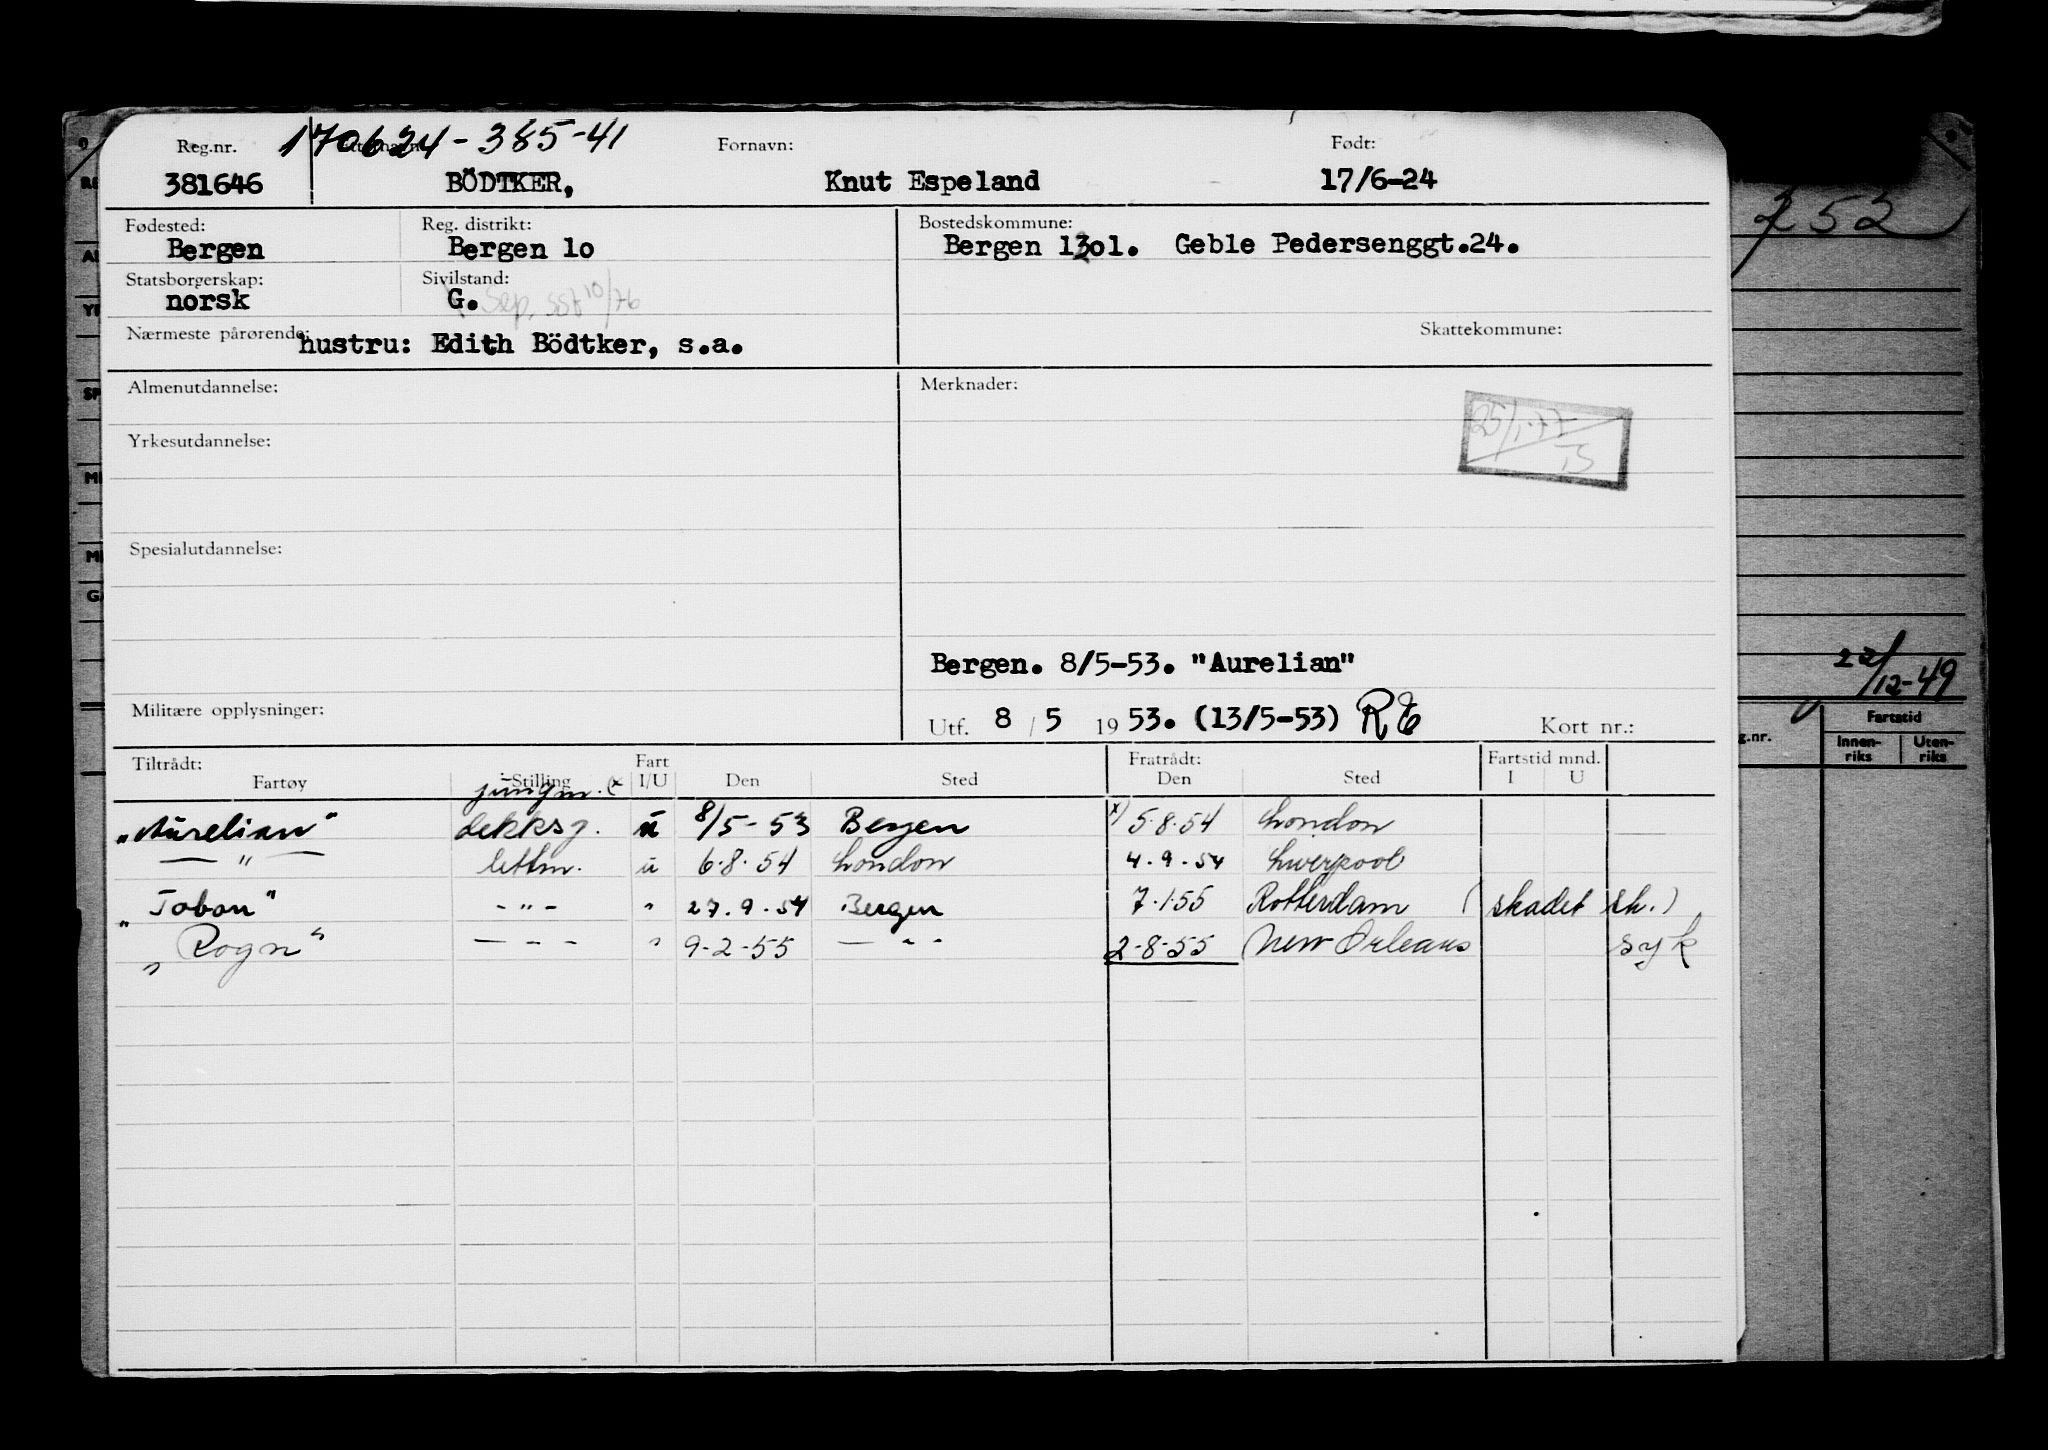 170624-385-41
Reg.nr. Fornavn: Født:
381646 BÖDTKER, Knut Espeland 17/6-24
Fødested: Reg. distrikt: Bostedskommune:
Bergen Bergen 1o Bergen 13o1. Geble Pedersenggt.24.
Statsborgerskap: Sivilstand:
norsk G. Sep. 10/76
Nærmeste pårørende: hustru: Edith Bödtker, s.a. Skattekommune:
Almenutdannelse: Merknader:
25/1-77
Yrkesutdannelse:
Spesialutdannelse:
Bergen. 8/5-53. "Aurelian"
Militære opplysninger: Utf. 8 / 5 19 53. (13/5-53) Kort nr.:
Tiltrådt: Fart Fratrådt: Fartstid mnd.
Fartøy Stilling I/U Den Sted Den Sted I U
jungm. (x
"Aurelian" dekksg. u 8/5-53 Bergen x) 5.8.54 London
— " — lettm. u 6.8.54 London 4.9.54 Liverpool
"Toban" - " - " 27.9.54 Bergen 7.1.55 Rotterdam (skadet sk.)
"Rogn" — - - " 9-2-55 — " - 2-8-55 New Orleans syk
252
22/12-49
g.nr. Fartstid
Innen-riks Uten-riks